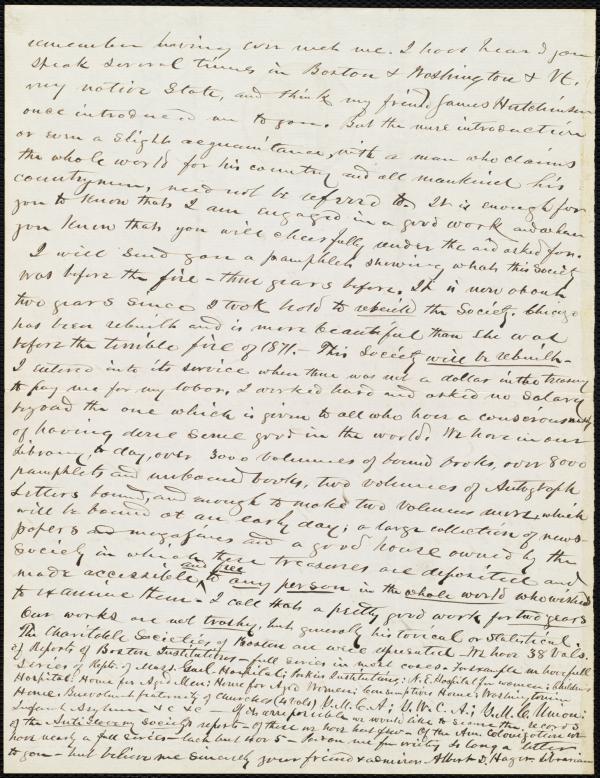 remember having ever met me. I have heard you
speak several times in Boston & Washington & Vt.
my native State, and think my friend James Hutchinson
once introduced me to you. But the mere introduction
or even a slight acquaintance, with a man who claims
the whole world for his country and all mankind his
countrymen, need not be referred to. It is enough for
you to know that I am engaged in a good work and when
you know that you will cheerfully render the aid asked for.
I will send you a pamphlet showing what this Society
was before the fire - three years before. It is now about
two years since I took hold to rebuild the Society. Chicago
has been rebuilt and is more beautiful than she was
before the terrible fire of 1871. - This Society will be rebuilt -
I entered into its service when there was not a dollar in the treasury
to pay me for my labor. I worked hard and asked no salary
beyond the one which is given to all who have a consciousness
of having done some good in the world. We have in our
Library, to day, over 3000 volumes of bound books, over 8000
pamphlets and unbound books, two volumes of Autograph
Letters bound, and enough to make two volumes more, which
will be bound at an early day; a large collection of news-
papers and magazines and a good house owned by the
Society in which these treasures are deposited and
made accessible, and free to any person in the whole world who wishes
to examine them - I call that a pretty good work for two years
Our works are not trashy, but generally historical or Statistical.
The Charitable Societies of Boston are well represented. We have 38 Vols.
of Reports of Boston Institutions - full series in most cases. For example we have full
Series of Repts. of Mass. Genl. Hospital; Perkins Institution; N.E. Hospital for women & children
Hospital; Home for Aged Men; Home for Aged Women; Consumptives Home; Washingtonian
Home; Benevolent fraternity of Churches (4 Vols) Y.M.C.A; Y.W.C.A; Y.M.C. Union;
Infant Asylum &c &c - If it is possible we would like to secure the
of the Anti Slavery Society's reports - of these we have but few - Of the Am. Colonization we
have nearly a full series - lack but 4 or 5 - Pardon me for writing so long a letter
to you - but believe me sincerely your friend & admirer Albert D. Hager Librarian